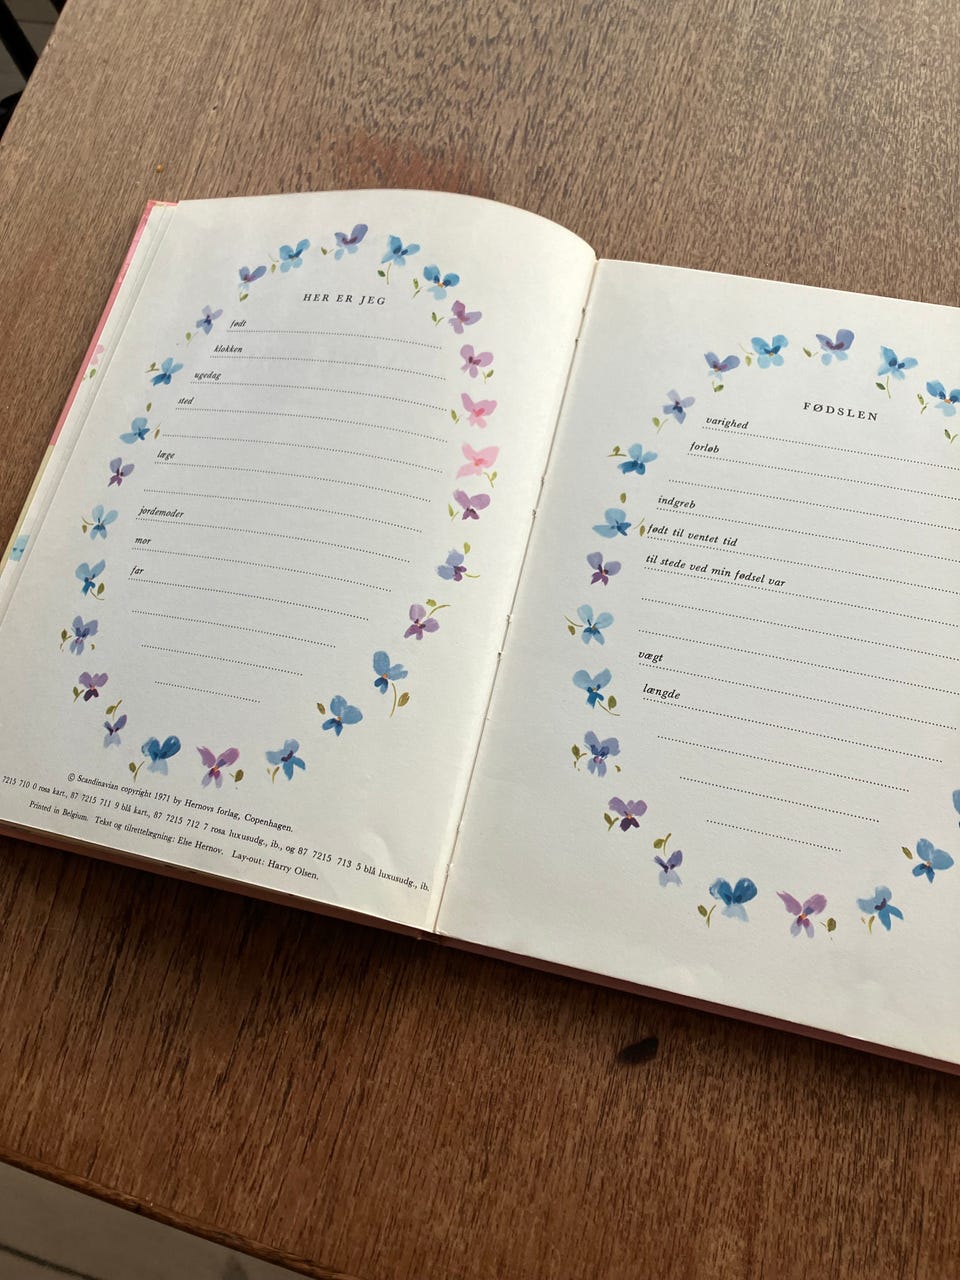 HER ER JEG
født
klokken
ugedag
sted
læge
jordemoder
mor
far
© Scandinavian copyright 1971 by Hernovs forlag, Copenhagen.
7215 710 0 rosa kart., 87 7215 711 9 blå kart., 87 7215 712 7 rosa luxusudg., ib., og 87 7215 713 5 blå luxusudg., ib.
Printed in Belgium. Tekst og tilrettelægning: Else Hernov. Lay-out: Harry Olsen.
FØDSLEN
varighed
forløb
indgreb
født til ventet tid
til stede ved min fødsel var
vægt
længde